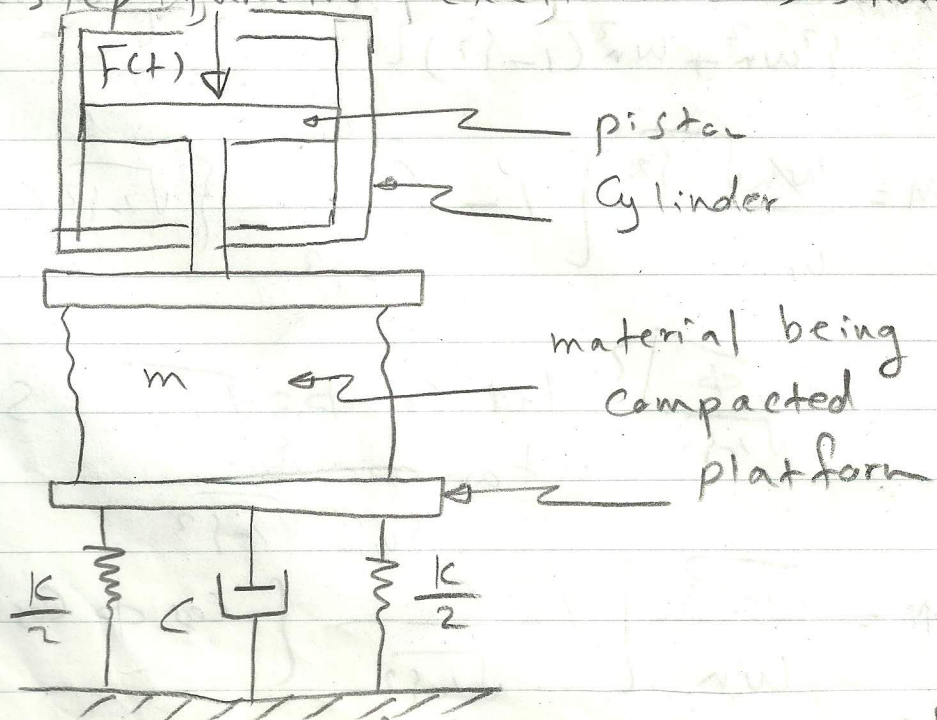 F(t)
piston
Cylinder
m
material being
compacted
platform
K/2
C
K/2